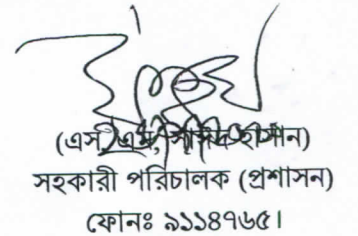 (এস, এম, সাঈদ হাসান)
সহকারী পরিচালক (প্রশাসন)
ফোনঃ ৯১১৪৭৬৫।